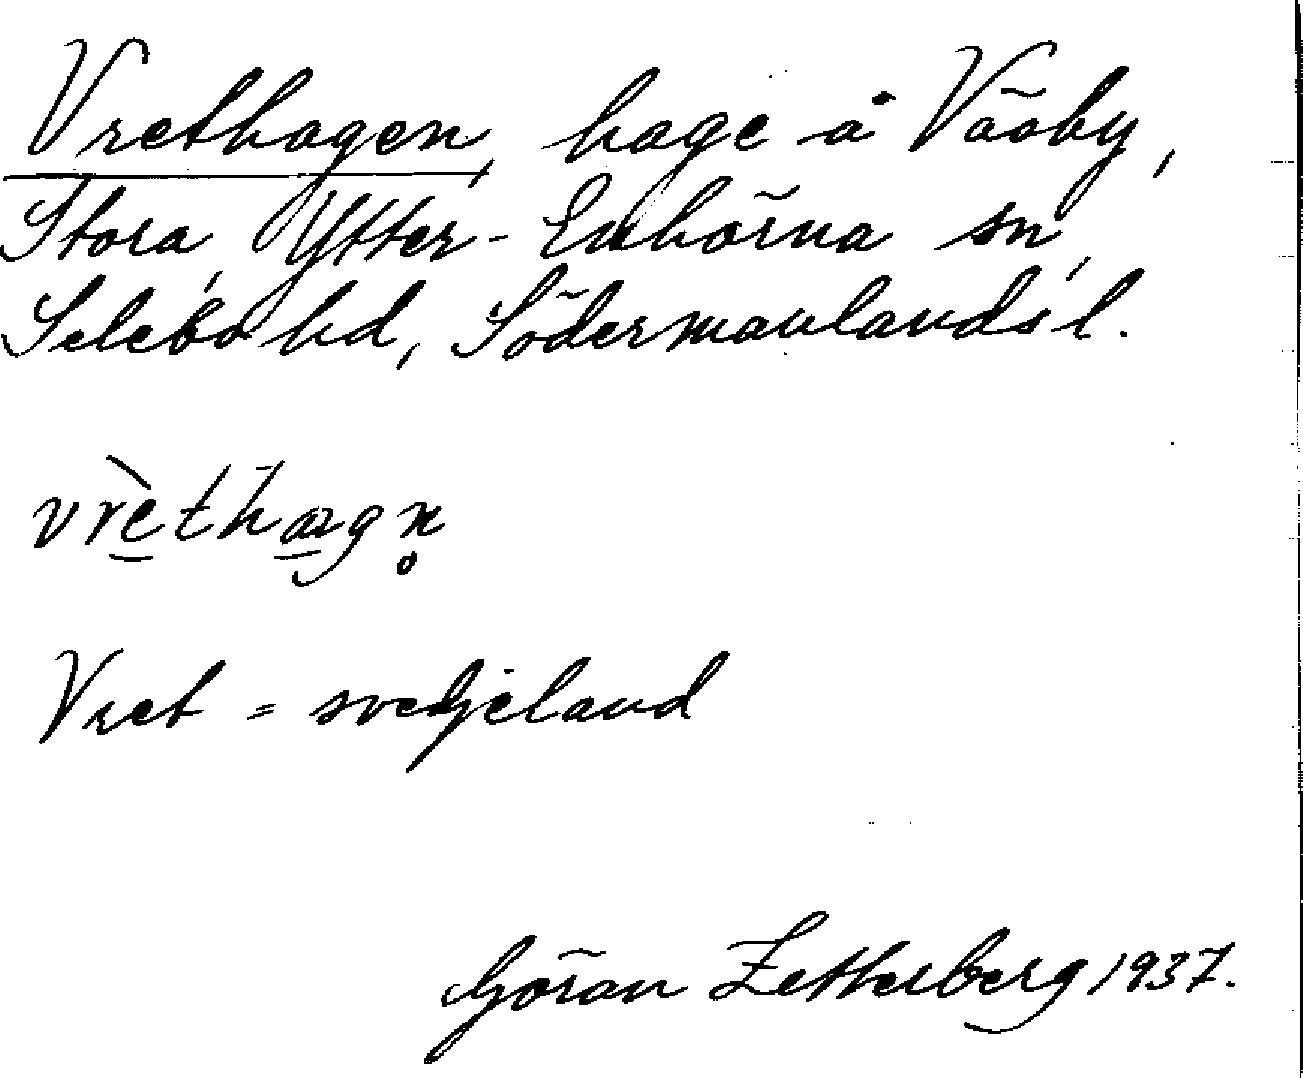 Vrethagen, hage å Väǒby,
Stora, Ytter-Enhörna sn,
Selebo hd, Södermanlands l.
vrèthagn̥
Vret = svedjeland
Göran Zetterberg 1937.